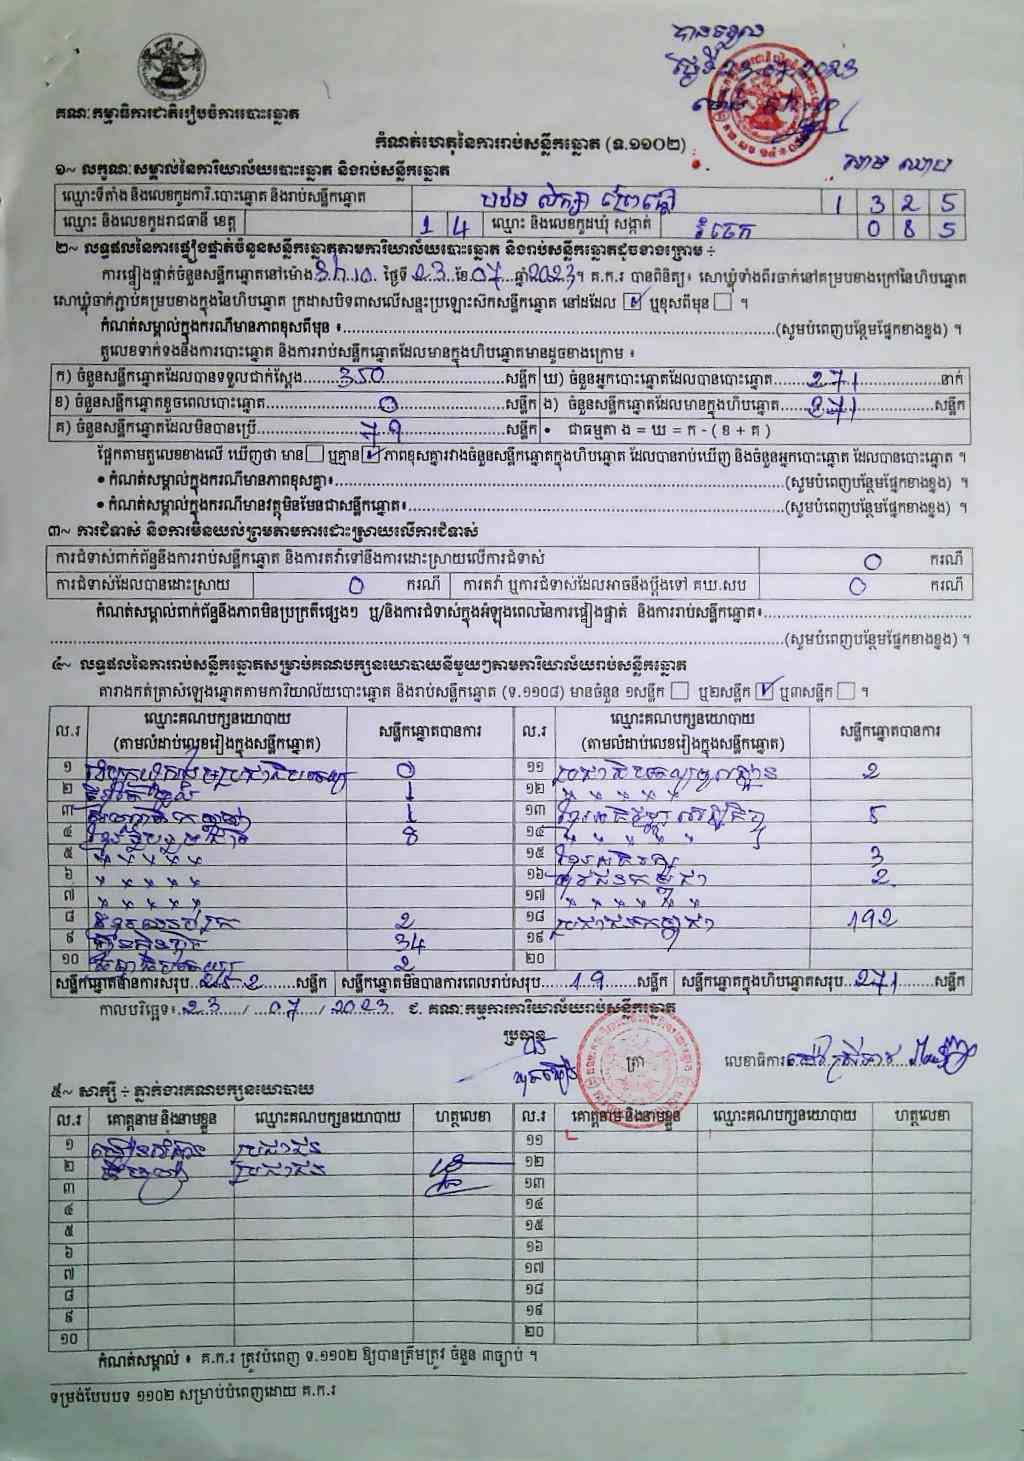 បានទទួល
ថ្ងៃទី 23.07.2023
គណៈកម្មាធិការជាតិរៀបចំការបោះឆ្នោត
កំណត់ហេតុនៃការរាប់សន្លឹកឆ្នោត (ទ.១១០២)
១~ លក្ខណៈសម្គាល់នៃការិយាល័យបោះឆ្នោត និងរាប់សន្លឹកឆ្នោត
ឈ្មោះទីតាំង និងលេខកូដការិ.បោះឆ្នោត និងរាប់សន្លឹកឆ្នោត បឋមសិក្សា 1 3 2 5
ឈ្មោះ និងលេខកូដរាជធានី ខេត្ត 1 4 ឈ្មោះ និងលេខកូដឃុំ សង្កាត់ រំចេក 0 8 5
២~ លទ្ធផលនៃការផ្ទៀងផ្ទាត់ចំនួនសន្លឹកឆ្នោតតាមការិយាល័យបោះឆ្នោត និងរាប់សន្លឹកឆ្នោតដូចខាងក្រោម ÷
ការផ្ទៀងផ្ទាត់ចំនួនសន្លឹកឆ្នោតនៅម៉ោង 3h10 ថ្ងៃទី 23 ខែ 07 ឆ្នាំ 2023។ គ.ក.រ បានពិនិត្យ៖ សោឃ្លុំទាំងពីរចាក់នៅគម្របខាងក្រៅនៃហិបឆ្នោត
សោឃ្លុំចាក់ភ្ជាប់គម្របខាងក្នុងនៃហិបឆ្នោត ក្រដាសបិទពាសលើសន្ទះប្រឡោះស៊ីកសន្លឹកឆ្នោត នៅដដែល ☑ ឬខុសពីមុន ☐ ។
កំណត់សម្គាល់ក្នុងករណីមានភាពខុសពីមុន ៖ (សូមបំពេញបន្ថែមផ្នែកខាងខ្នង) ។
តួលេខទាក់ទងនឹងការបោះឆ្នោត និងការរាប់សន្លឹកឆ្នោតដែលមានក្នុងហិបឆ្នោតមានដូចខាងក្រោម ៖
ក) ចំនួនសន្លឹកឆ្នោតដែលបានទទួលជាក់ស្តែង 350 សន្លឹក ឃ) ចំនួនអ្នកបោះឆ្នោតដែលបានបោះឆ្នោត 271 នាក់
ខ) ចំនួនសន្លឹកឆ្នោតខូចពេលបោះឆ្នោត 0 សន្លឹក ង) ចំនួនសន្លឹកឆ្នោតដែលមានក្នុងហិបឆ្នោត 271 សន្លឹក
គ) ចំនួនសន្លឹកឆ្នោតដែលមិនបានប្រើ 79 សន្លឹក • ជាធម្មតា ង = ឃ = ក - ( ខ + គ )
ផ្អែកតាមតួលេខខាងលើ ឃើញថា មាន ☐ ឬគ្មាន ☑ ភាពខុសគ្នារវាងចំនួនសន្លឹកឆ្នោតក្នុងហិបឆ្នោត ដែលបានរាប់ឃើញ និងចំនួនអ្នកបោះឆ្នោត ដែលបានបោះឆ្នោត ។
• កំណត់សម្គាល់ក្នុងករណីមានភាពខុសគ្នា៖ (សូមបំពេញបន្ថែមផ្នែកខាងខ្នង) ។
• កំណត់សម្គាល់ក្នុងករណីមានវត្ថុមិនមែនជាសន្លឹកឆ្នោត៖ (សូមបំពេញបន្ថែមផ្នែកខាងខ្នង) ។
៣~ ការជំទាស់ និងការមិនយល់ព្រមតាមការដោះស្រាយលើការជំទាស់
ការជំទាស់ពាក់ព័ន្ធនឹងការរាប់សន្លឹកឆ្នោត និងការតវ៉ាទៅនឹងការដោះស្រាយលើការជំទាស់ 0 ករណី
ការជំទាស់ដែលបានដោះស្រាយ 0 ករណី ការតវ៉ា ឬការជំទាស់ដែលអាចនឹងប្តឹងទៅ គឃ.សប 0 ករណី
កំណត់សម្គាល់ពាក់ព័ន្ធនឹងភាពមិនប្រក្រតីផ្សេងៗ ឬ/និងការជំទាស់ក្នុងអំឡុងពេលនៃការផ្ទៀងផ្ទាត់ និងការរាប់សន្លឹកឆ្នោត៖
(សូមបំពេញបន្ថែមផ្នែកខាងខ្នង) ។
៤~ លទ្ធផលនៃការរាប់សន្លឹកឆ្នោតសម្រាប់គណបក្សនយោបាយនីមួយៗតាមការិយាល័យរាប់សន្លឹកឆ្នោត
តារាងកត់ត្រាសំឡេងឆ្នោតតាមការិយាល័យបោះឆ្នោត និងរាប់សន្លឹកឆ្នោត (ទ.១១០៨) មានចំនួន ១សន្លឹក ☐ ឬ២សន្លឹក ☑ ឬ៣សន្លឹក ☐ ។
ល.រ ឈ្មោះគណបក្សនយោបាយ (តាមលំដាប់លេខរៀងក្នុងសន្លឹកឆ្នោត) សន្លឹកឆ្នោតបានការ ល.រ ឈ្មោះគណបក្សនយោបាយ (តាមលំដាប់លេខរៀងក្នុងសន្លឹកឆ្នោត) សន្លឹកឆ្នោតបានការ
១ 0 ១១ ប្រជាធិបតេយ្យមូលដ្ឋាន 2
២ 1 ១២ " " " " "
៣ 1 ១៣ 5
៤ ខ្មែររួបរួមជាតិ 8 ១៤ " " " "
៥ " " " " " ១៥ 3
៦ " " " " " ១៦ 2
៧ " " " " " ១៧ " " " " "
៨ 2 ១៨ ប្រជាជនកម្ពុជា 192
៩ ហ៊្វុនស៊ិនប៉ិច 34 ១៩
១០ 2 ២០
សន្លឹកឆ្នោតបានការសរុប 252 សន្លឹក សន្លឹកឆ្នោតមិនបានការពេលរាប់សរុប 19 សន្លឹក សន្លឹកឆ្នោតក្នុងហិបឆ្នោតសរុប 271 សន្លឹក
កាលបរិច្ឆេទ៖ 23 / 07 / 2023 ជ. គណៈកម្មការការិយាល័យរាប់សន្លឹកឆ្នោត
ប្រធាន
ត្រា
លេខាធិការ
៥~ សាក្សី ÷ ភ្នាក់ងារគណបក្សនយោបាយ
ល.រ គោត្តនាម និងនាមខ្លួន ឈ្មោះគណបក្សនយោបាយ ហត្ថលេខា ល.រ គោត្តនាម និងនាមខ្លួន ឈ្មោះគណបក្សនយោបាយ ហត្ថលេខា
១ ប្រជាជន ១១
២ ប្រជាជន ១២
៣ ១៣
៤ ១៤
៥ ១៥
៦ ១៦
៧ ១៧
៨ ១៨
៩ ១៩
១០ ២០
កំណត់សម្គាល់ ៖ គ.ក.រ ត្រូវបំពេញ ទ.១១០២ ឱ្យបានត្រឹមត្រូវ ចំនួន ៣ច្បាប់ ។
ទម្រង់បែបបទ ១១០២ សម្រាប់បំពេញដោយ គ.ក.រ